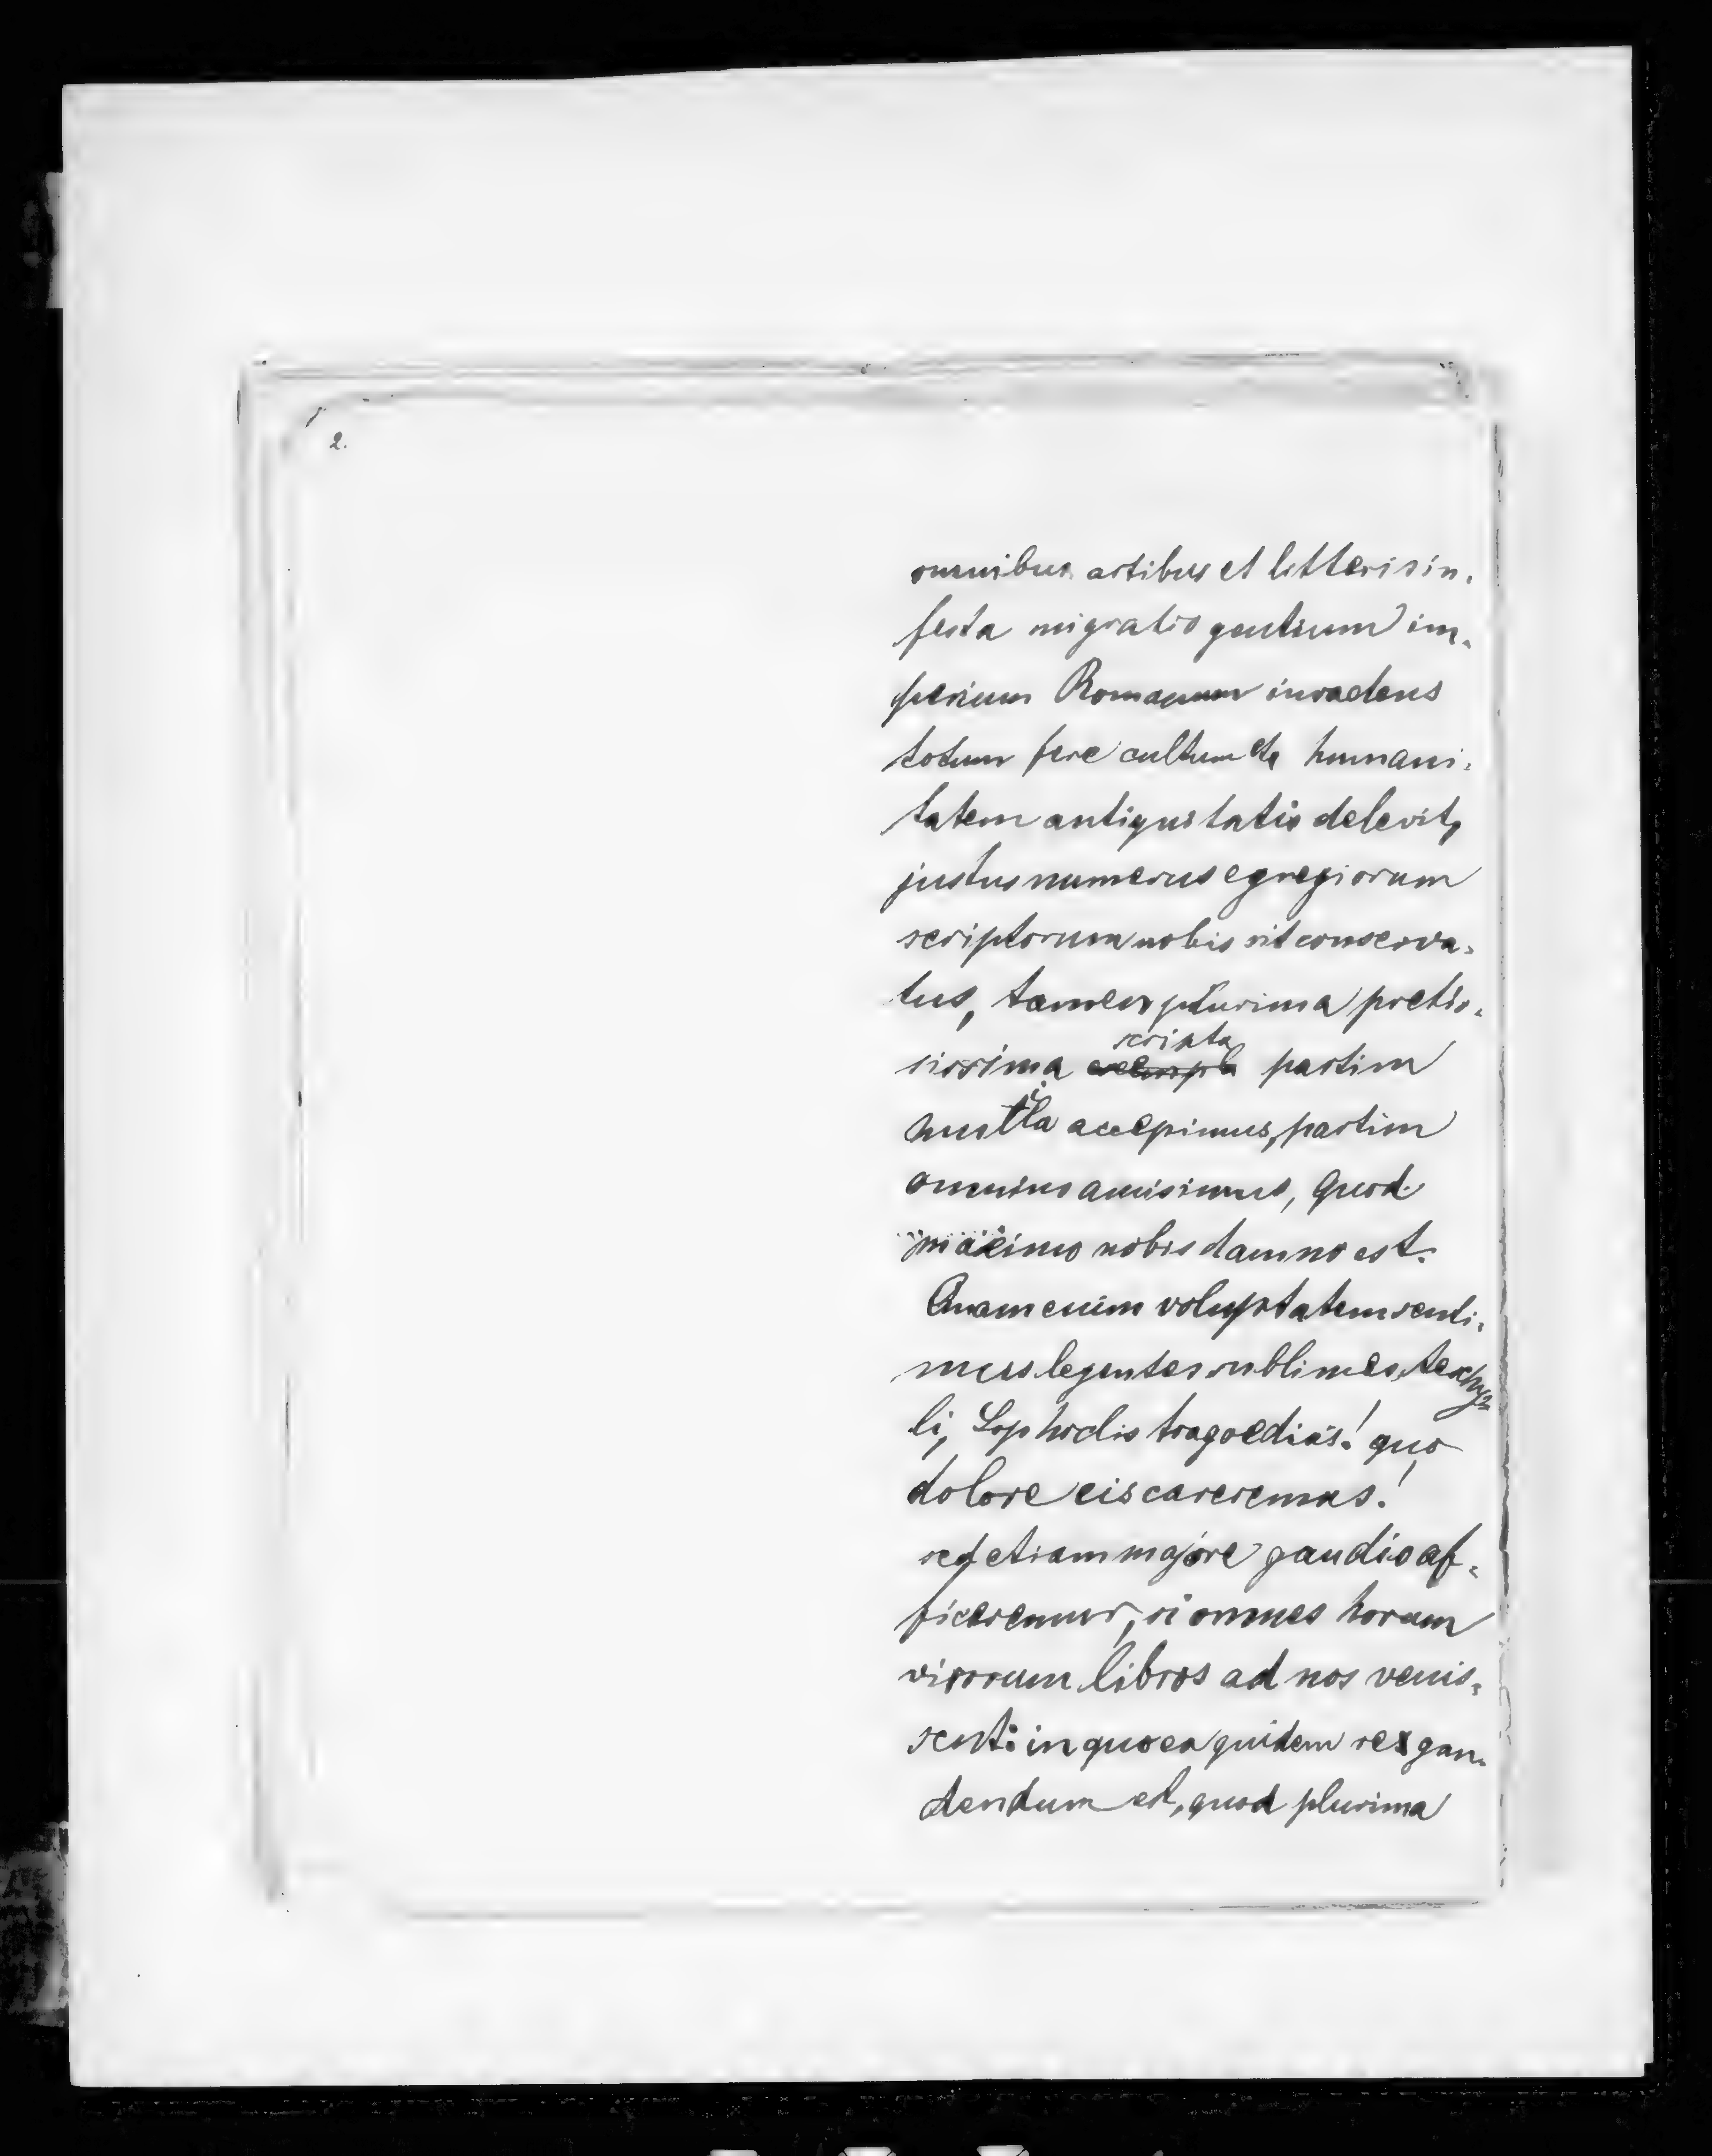 2.
omnibus artibus et litteris in-
festa migratio gentium im-
perium Romanum invadens
totum fere cultum et humani-
tatem antiquitatis delevit,
justus numerus egregiorum
scriptorum nobis sit conserva-
tus, tamen plurima pretio-
scripta
sissima partim
mutila accepimus, partim
omnino amisimus, quod
maximo nobis damno est.
Quam enim voluptatem senti-
mus legentes sublimes Aeschy-
li, Sophoclis tragoedias! quo
dolore eis careremus!
sed etiam majore gaudio af-
ficeremur, si omnes horum
virorum libros ad nos venis-
sent: in qua quidem re gau-
dendum est, quod plurima